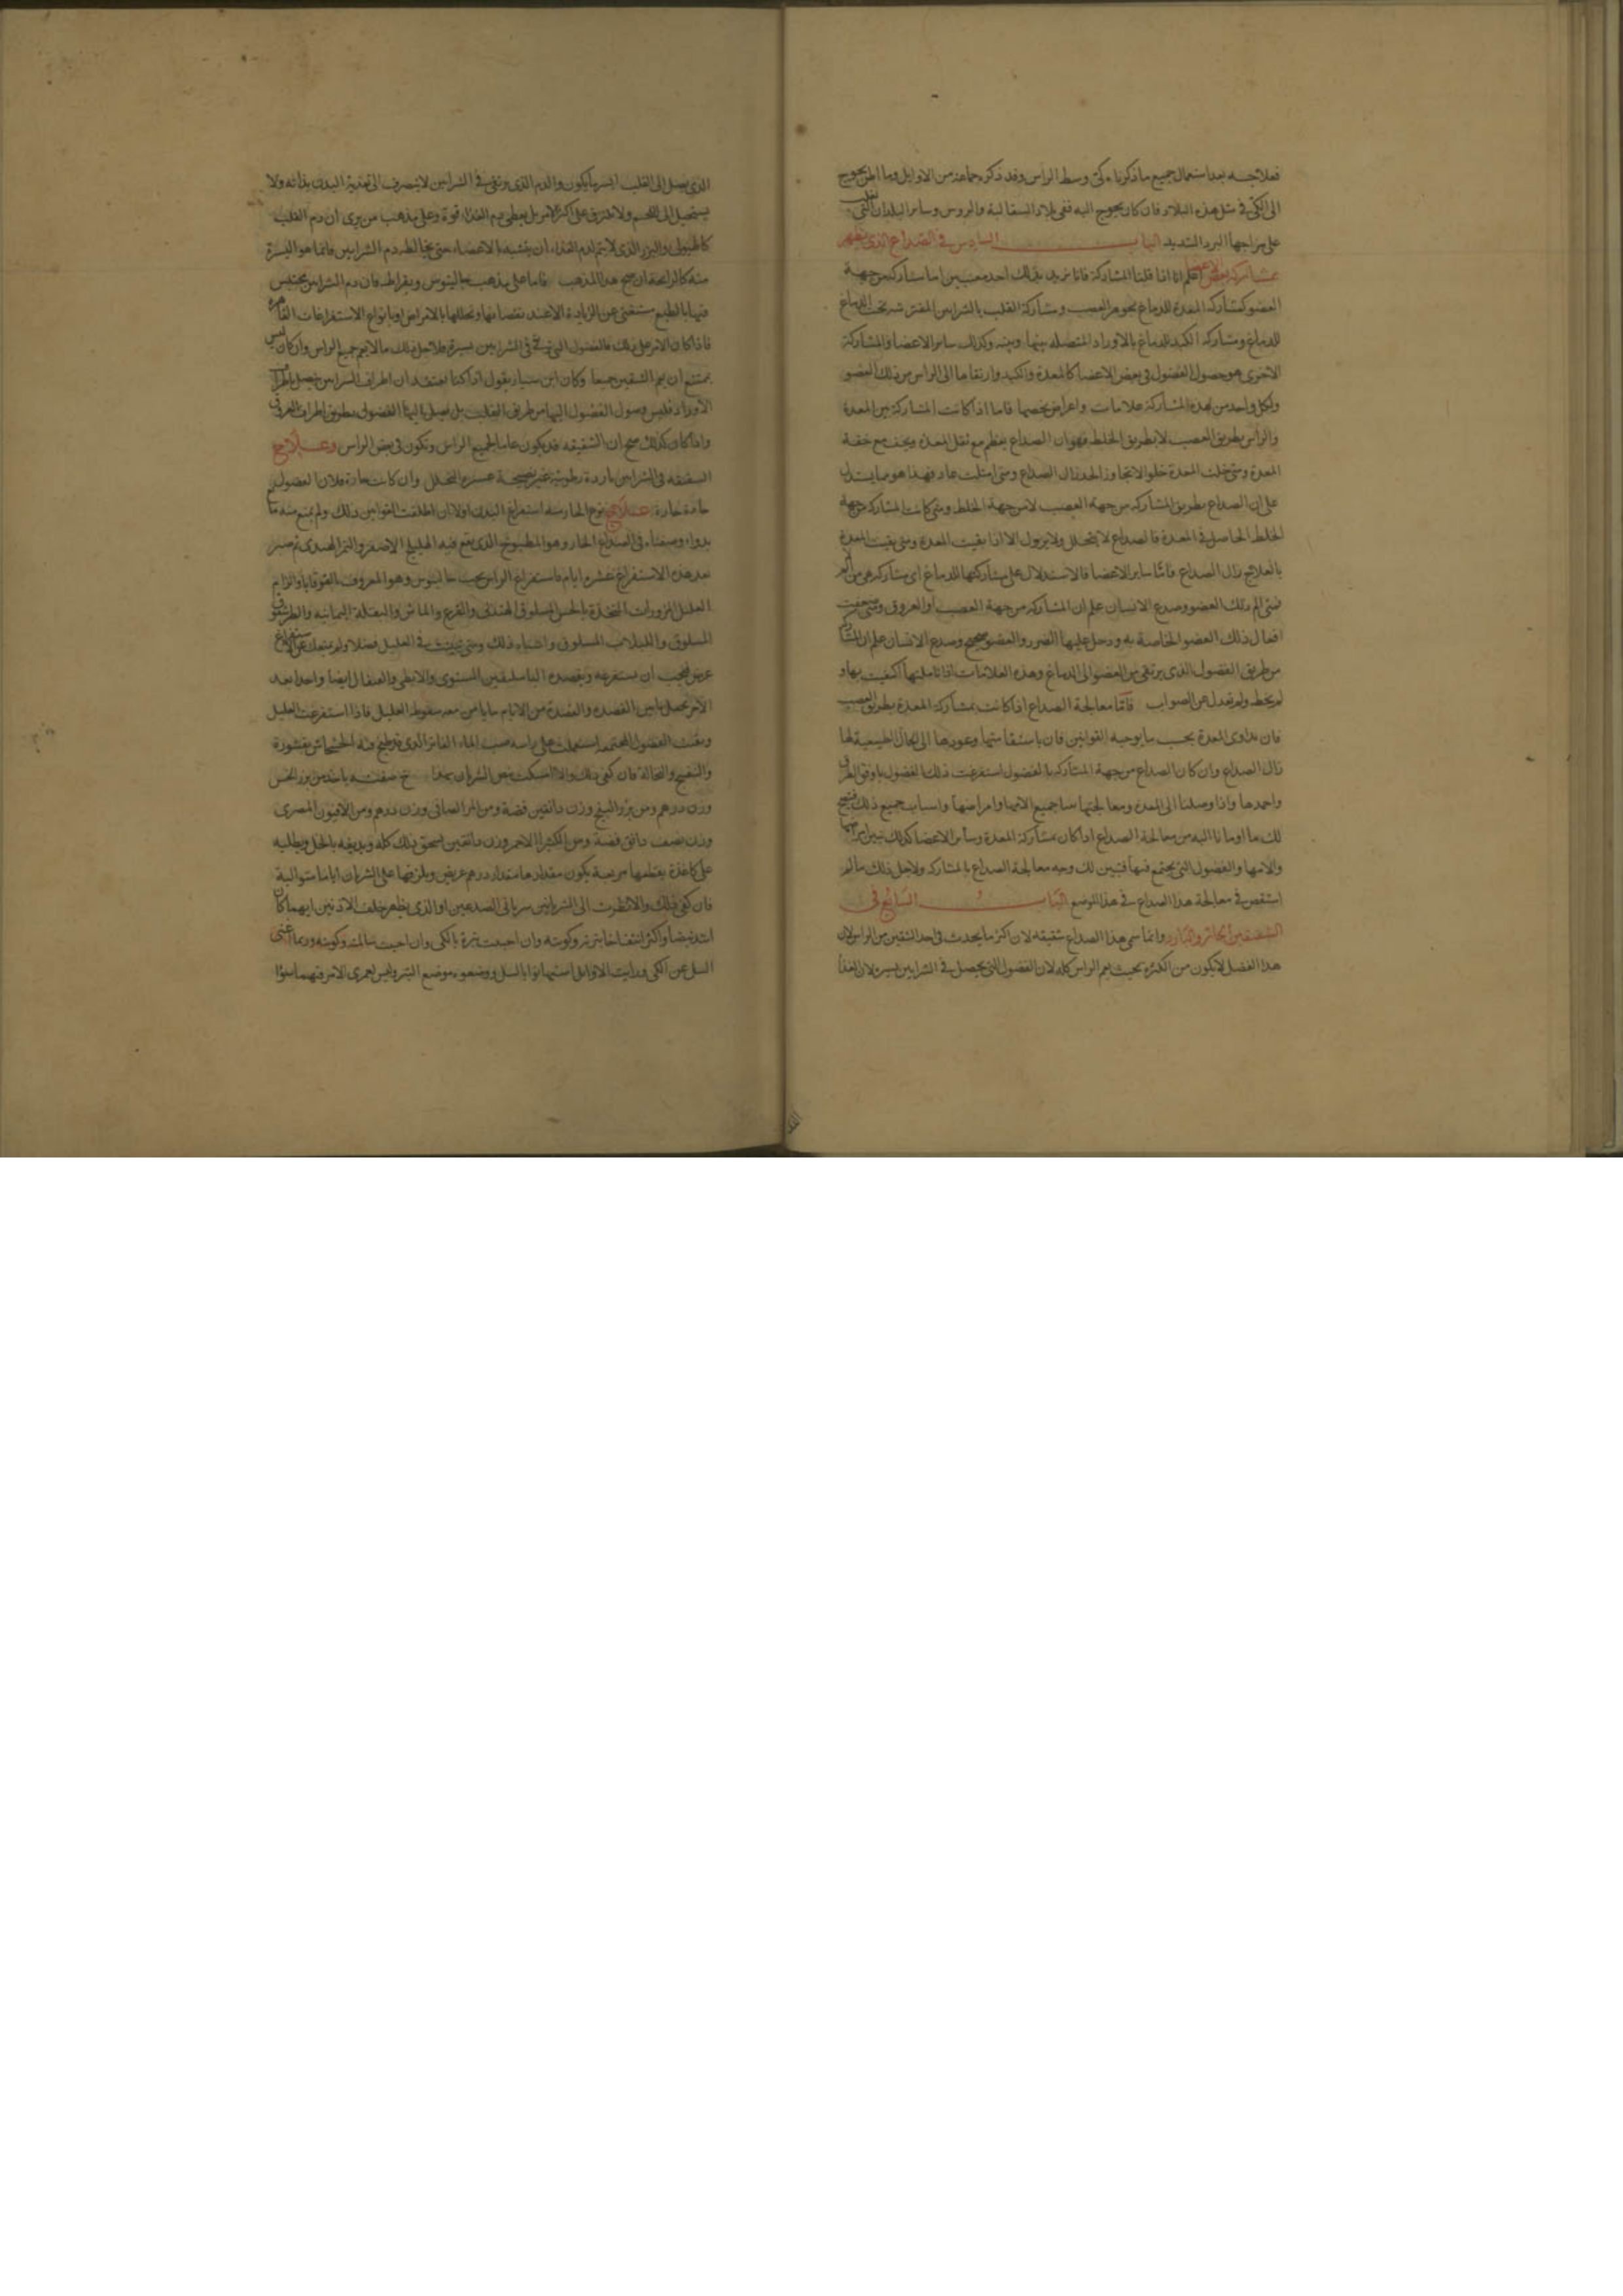 فعلاجه بعد استعمال جميع ما ذكرناه كى وسط الراس وقد ذكره جماعة من الاوايل وما اظن يحوج
الى الكى فى مثل هذه البلاد فان كان يحوج اليه ففى بلاد السقالبة والروس وساير البلدان التى يغلب
على مزاجها البرد الشديد الباب السادس فى الصداع الذى يظهر
بمشاركة بعض الاعضا اعلم انا اذا قلنا المشاركة فانا نريد بذلك احد معنيين اما مشاركه من جهة
العضو كمشاركه المعدة للدماغ بجوهر العصب ومشاركة القلب بالشرايين المفترشه تحت الدماغ
للدماغ ومشاركه الكبد للدماغ بالاوراد المتصله بينها وبينه وكذلك ساير الاعضا والمشاركة
الاخرى هو حصول الفضول فى بعض الاعضا كالمعدة والكبد وارتقاها الى الراس من ذلك العضو
ولكل واحد من هذه المشاركة علامات واعراض يخصها فاما اذا كانت المشاركة بين المعدة
والراس بطريق العصب لا بطريق الخلط فهو ان الصداع يعظم مع ثقل المعدة ويخف مع خفة
المعدة ومتى خلت المعدة خلوا لا يتجاوز الحد زال الصداع ومتى امتلت عاد فهذا هو ما يستدل
على ان الصداع بطريق المشاركه من جهة العصب لا من جهة الخلط ومتى كانت المشاركه من جهة
الخلط الحاصل فى المعدة فالصداع لا يتحلل ولا يزول الا اذا نقيت المعدة ومتى نقيت المعدة
بالعلاج زال الصداع فاما ساير الاعضا فالاستدلال على مشاركتها للدماغ اى مشاركه هى من الم
فمتى الم ذلك العضو وصدع الانسان علم ان المشاركه من جهة العصب او العروق ومتى ضعفت
افعال ذلك العضو الخاصة به ودخل عليها الضرر والعضو صحيح وصدع الانسان علم ان المشاركة
من طريق الفضول الذى يرتقى من العضو الى الدماغ وهذه العلامات اذا تاملتها اكتفيت بها و
لم تخط ولم تعدل عن الصواب فاما معالجة الصداع اذا كانت بمشاركة المعدة بطريق العصب
فان تداوى المعدة بحسب ما يوجبه القوانين فان باستقامتها وعودها الى الحال الطبيعية لها
زال الصداع وان كان الصداع من جهة المشاركه بالفضول استفرغت ذلك الفضول باوفق الطرق
واحمدها واذا وصلنا الى المعدة ومعالجتها بينا جميع الامها وامراضها واسباب جميع ذلك فيتضح
لك ما اومانا اليه من معالجة الصداع اذا كان بمشاركة المعدة وساير الاعضا كذلك نبين امراضها
والامها والفضول التى يجتمع فيها فتبين لك وجه معالجة الصداع بالمشاركه ولاجل ذلك ما لم
استقص فى معالجة هذا الصداع فى هذا الموضع الباب السابع فى
الشقيقتين الحار والبارد وانما سمى هذا الصداع شقيقه لان اكثر ما يحدث فى احد الشقين من الراس لان
هذا الفضل لا يكون من الكثره بحيث يعم الراس كله لان الفضول التى يحصل فى الشرايين يسيره لان الغذا
الذى يصل الى القلب ايسر ما يكون والدم الذى يرتقى فى الشرايين لا ينصرف الى تغذية البدن بذاته ولا
يستحيل الى اللحم ولا يتفرق على اكثر الامر بل يعطى دم الغذا قوة وعلى مذهب من يرى ان دم القلب
كالهيولى والبزر الذى لا يتم لدم الغذا ان يتشبه بالاعضاء حتى يخالطه دم الشرايين فانما هو اليسرة
منه كالرايحة ان صح هذا المذهب فاما على مذهب جالينوس وبقراط فان دم الشرايين يحتبس
فيها بالطبع مستغنى عن الزيادة الا عند نقصانها وتحللها بالامراض او بانواع الاستفراغات القاهرة
فاذا كان الامر على ذلك فالفضول التى فى الشرايين يسيرة فلاجل ذلك ما لا يعم جميع الراس وان كان ليس
يمتنع ان يعم الشقين جميعا وكان ابن سيار يقول اذا كنا نعتقد ان اطراف الشرايين يتصل باطراف
الاوراد فليس وصول الفضول اليها من طريق القلب بل يصل اليها الفضول بطريق اطراف العروق
واذا كان كذلك صح ان الشقيقه قد يكون عاما لجميع الراس وتكون فى بعض الراس وعلاج
الشقيقه فى الشرايين باردة رطوبية غير نضيجة عسرة التحلل وان كانت حارة فلان الفضول
حادة حارة علاج نوع الحار منه استفراغ البدن اولا ان اطلقت القوانين ذلك ولم يمنع منه مانع
بدواء وصفناه فى الصداع الحار وهو المطبوخ الذى يقع فيه الهليلج الاصفر والتمر الهندى ثم تصبر
بعد هذه الاستفراغ عشرة ايام فاستفراغ الراس بحب جالينوس وهو المعروف بالقوقايا والزام
العليل المزورات المتخذة بالخس المسلوق الهندبا والقرع والماش والبقلة اليمانيه والطرشقوق
المسلوق واللبلاب المسلوق واشباه ذلك ومتى تبينت فى العليل فضلا ولم يمنعك عن الاستفراغ
عرض فيجب ان يستفرغه وبفصده الباسليقين المستوى والابطى والقيفال ايضا واحدا بعد
الاخر يحصل ما بين الفصده والفصدة من الايام ما يامن معه سقوط العليل فاذا استفرغت العليل
وبقيت الفضول المجتمعه استعملت على راسه صب الماء الفاتر الذى قد طبخ فيه الخشخاش بقشوره
والبنفسج والنخالة فان كفى ذلك والا امسكت نبض الشريان بهذا صفته ياخذ من بزر الخس
وزن درهم ومن بزر البنج وزن دانقين فضة ومن المر الصافى وزن درهم ومن الافيون المصرى
وزن نصف دانق فضة ومن الكثيرا الاحمر وزن دانقين يسحق ذلك كله ويديفه بالخل ويطليه
على كاغذة يقطعها مربعة يكون مقدارها مقدار درهم عريض ويلزقها على الشريان اياما متوالية
فان كفى ذلك والا نظرت الى الشريانين شريانى الصدغين او الذى يظهر خلف الاذنين ايهما كان
اشد نبضا واكثر انتفاخا بترته وكويته وان احببت بترة بالكى وان احببت سللته وكويته وربما اغنى
السل عن الكى ورايت الاوايل استهانوا بالسل ووضعوه موضع البتر وليس لعمرى الامر فيهما سوا